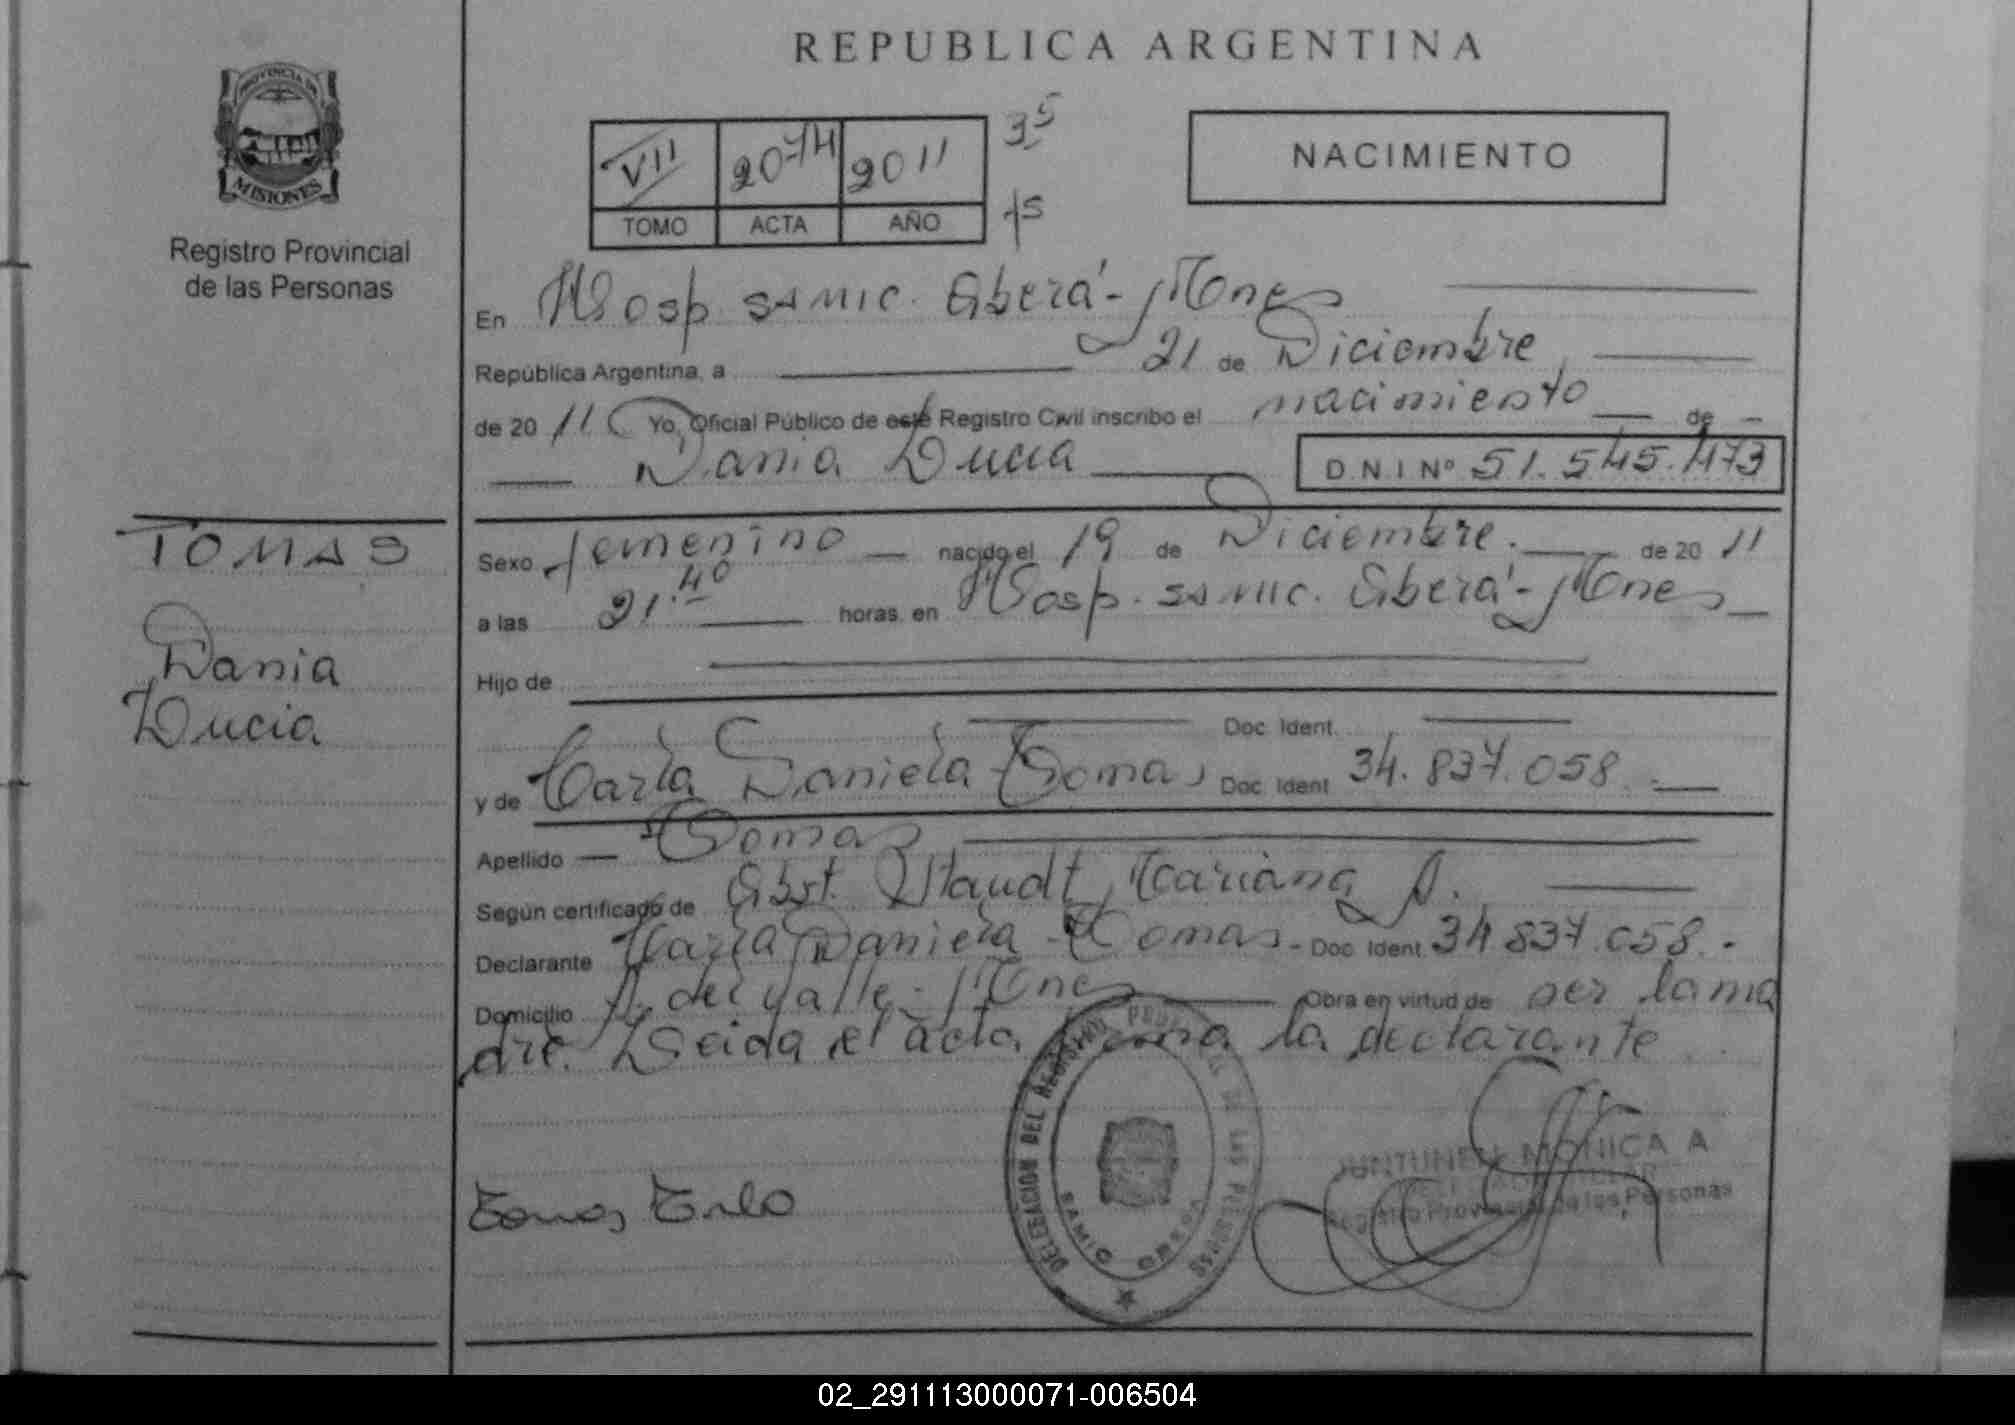 REPUBLICA ARGENTINA
PROVINCIA DE
MISIONES
Registro Provincial
de las Personas
VII 2074 2011
TOMO ACTA AÑO
35
NACIMIENTO
En Hosp. samic. Oberá - Mnes
República Argentina, a 21 de Diciembre
de 2011 Yo, Oficial Público de este Registro Civil inscribo el nacimiento de
Dania Lucia D.N.I Nº 51.545.473
TOMAS
Dania
Lucia
Sexo femenino nacido el 19 de Diciembre. de 2011
a las 21.40 horas, en Hosp. samic. Oberá - Mnes
Hijo de
Doc. Ident.
y de Carla Daniela Tomas Doc. Ident. 34.837.058.-
Apellido Tomas
Según certificado de Obst. Staudt, Mariana
Declarante Carla Daniela Tomas - Doc. Ident. 34.837.058.-
Domicilio A. del Valle - Mnes Obra en virtud de ser la ma
dre. Leida el acta firma la declarante
DELEGACION DEL REGISTRO PROVINCIAL DE LAS PERSONAS
SAMIC OBERA
JUNTUNEN MONICA A
Registro Provincial de las Personas
Tomas Carla
02_291113000071-006504